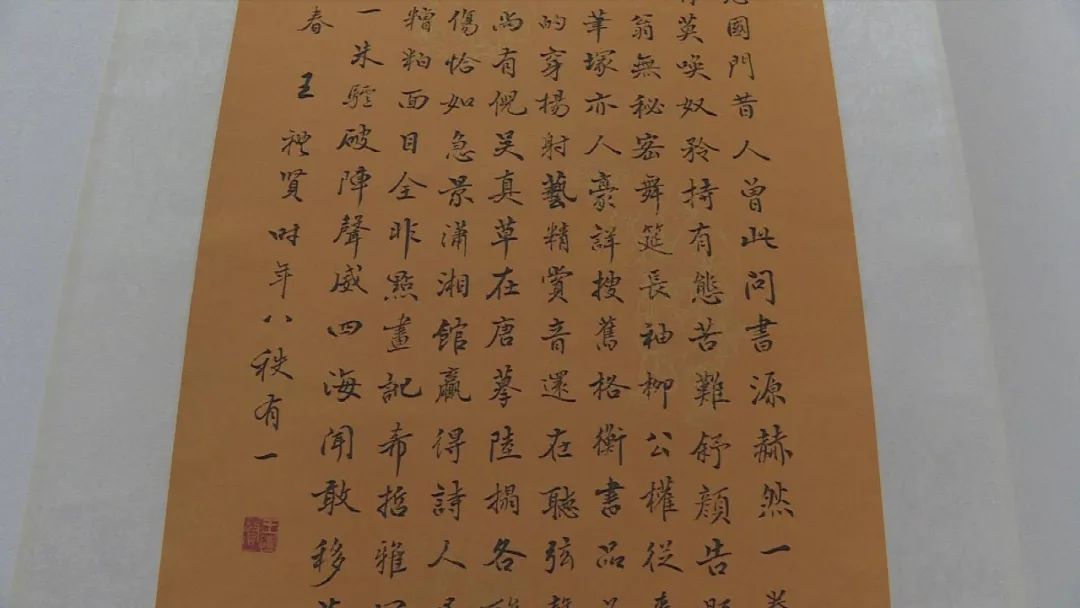 國門昔人曾此問書源赫然一
英喚奴矜持有態苦難舒顏告
翁無秘密舞筵長袖柳公權從
筆塚亦人豪詳搜舊格衡書品
的穿楊射藝精賞音還在聽弦
尚有俔吳真草在唐摹陸搨各
傷恰如急景瀟湘館贏得詩人
糟粕面目全非點畫記希哲雅
一朱驢破陣聲威四海聞敢移
春王禮賢时年八秩有一